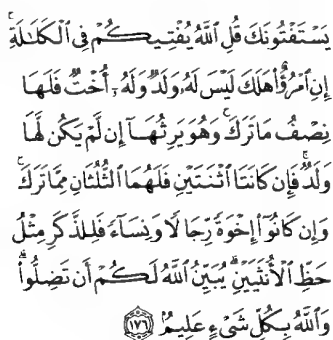 يَسْتَفْتُونَكَ قُلِ ٱللَّهُ يُفْتِيكُمْ فِى ٱلْكَلَـٰلَةِ ۚ
إِنِ ٱمْرُؤٌا۟ هَلَكَ لَيْسَ لَهُۥ وَلَدٌ وَلَهُۥٓ أُخْتٌ فَلَهَا
نِصْفُ مَا تَرَكَ ۚ وَهُوَ يَرِثُهَآ إِن لَّمْ يَكُن لَّهَا
وَلَدٌ ۚ فَإِن كَانَتَا ٱثْنَتَيْنِ فَلَهُمَا ٱلثُّلُثَانِ مِمَّا تَرَكَ ۚ
وَإِن كَانُوٓا۟ إِخْوَةً رِّجَالًا وَنِسَآءً فَلِلذَّكَرِ مِثْلُ
حَظِّ ٱلْأُنثَيَيْنِ ۗ يُبَيِّنُ ٱللَّهُ لَكُمْ أَن تَضِلُّوا۟ ۗ
وَٱللَّهُ بِكُلِّ شَىْءٍ عَلِيمٌۢ ١٧٦